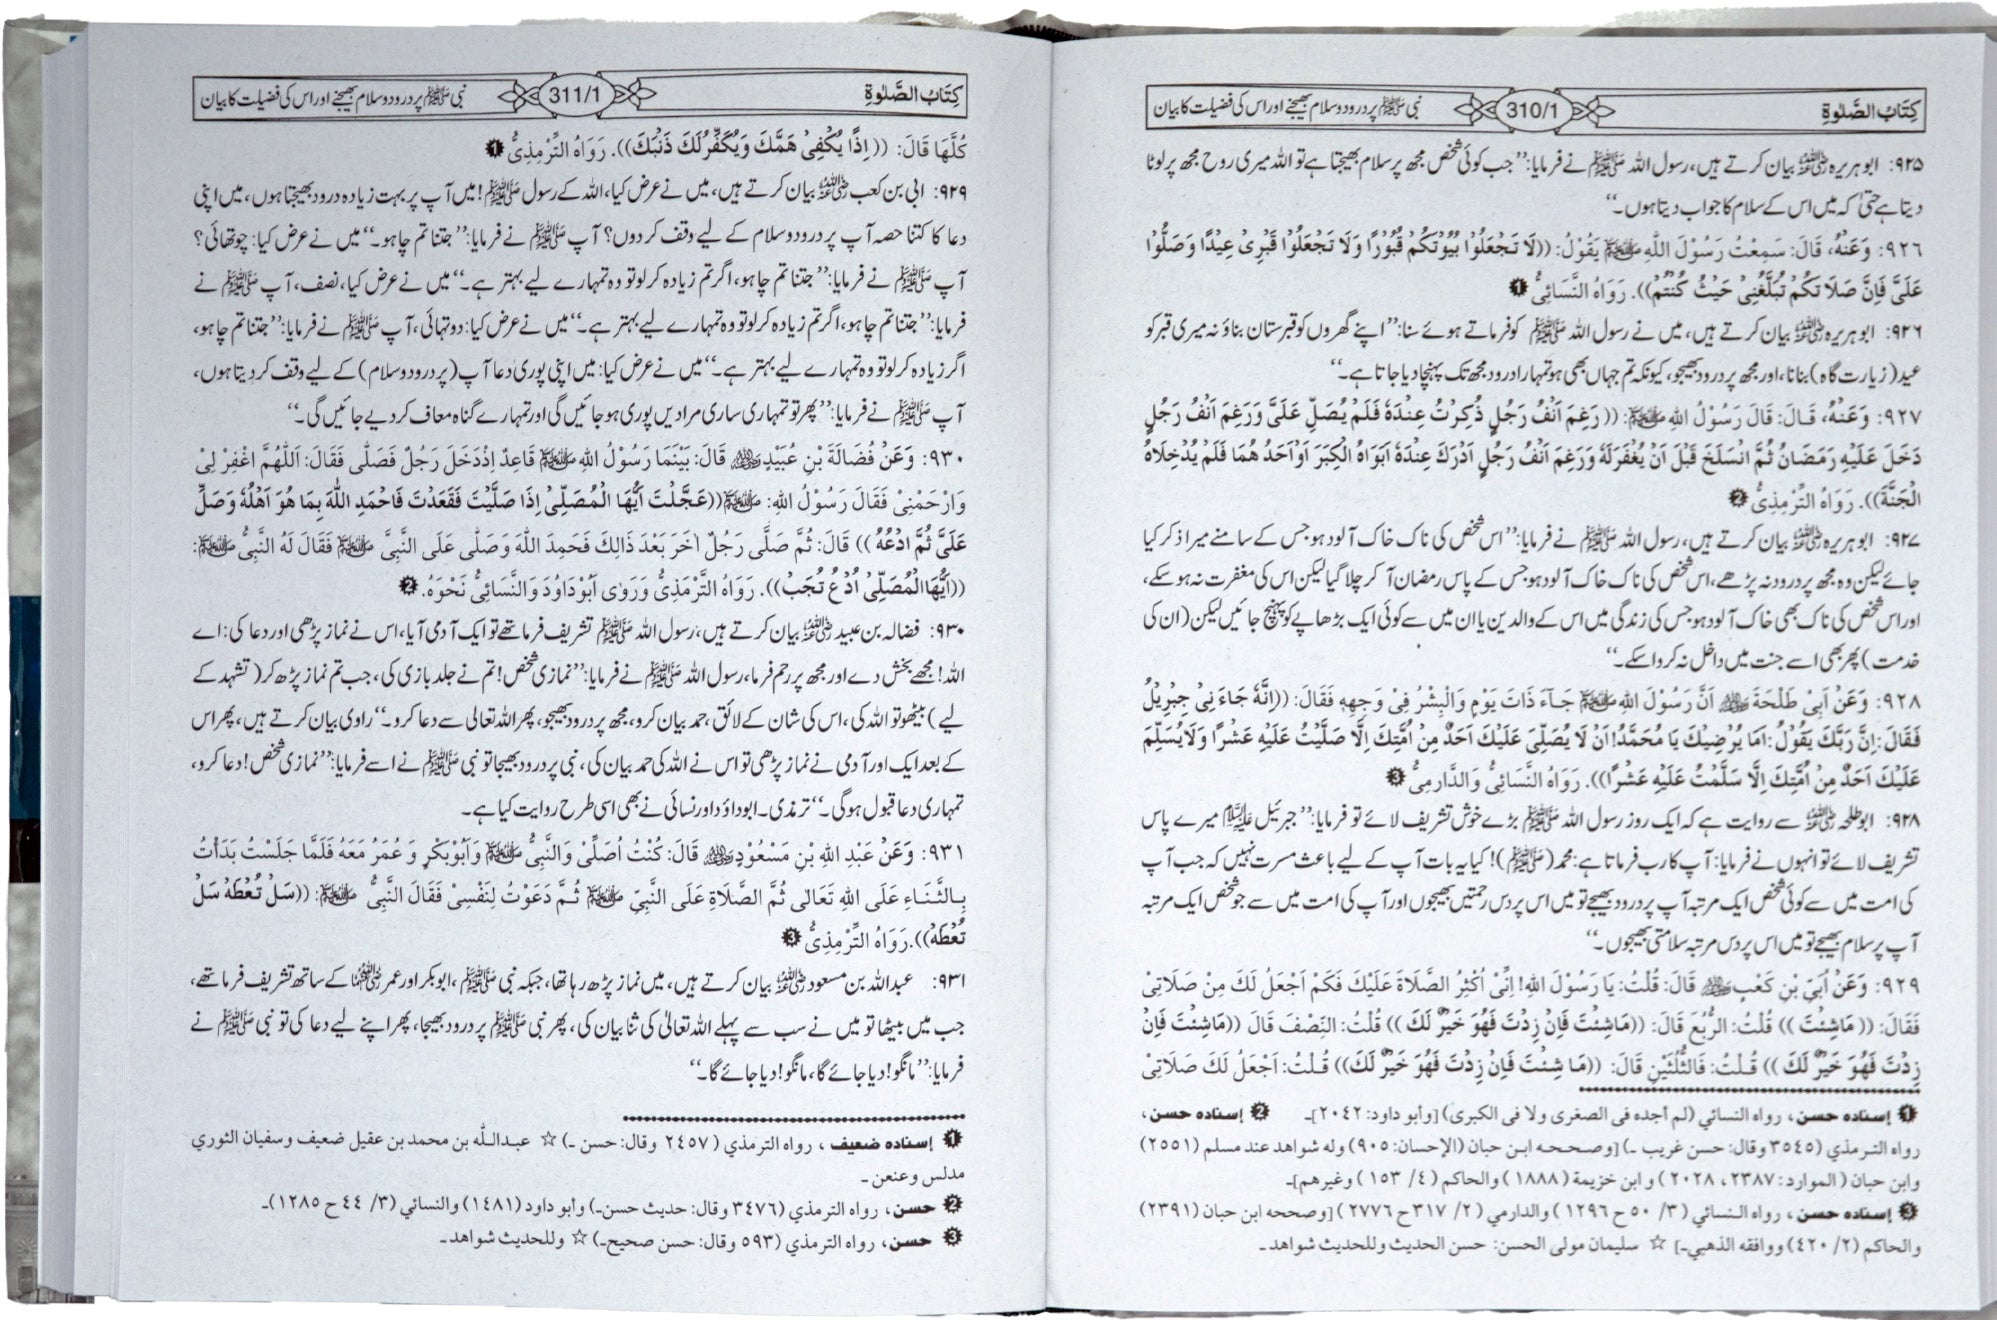 كِتَابُ الصَّلٰوةِ 310/1 نبی ﷺ پر درود وسلام بھیجنے اور اس کی فضیلت کا بیان
۹۲۵: ابو ہریرہ رضی اللہ عنہ بیان کرتے ہیں، رسول اللہ ﷺ نے فرمایا: ’’جب کوئی شخص مجھ پر سلام بھیجتا ہے تو اللہ میری روح مجھ پر لوٹا
دیتا ہے حتیٰ کہ میں اس کے سلام کا جواب دیتا ہوں۔‘‘
۹۲٦: وَعَنْهُ، قَالَ: سَمِعْتُ رَسُوْلَ اللهِ ﷺ يَقُوْلُ: ((لَا تَجْعَلُوْا بُيُوْتَكُمْ قُبُوْرًا وَلَا تَجْعَلُوْا قَبْرِیْ عِيْدًا وَصَلُّوْا
عَلَيَّ فَاِنَّ صَلَاتَكُمْ تُبَلَّغُنِیْ حَيْثُ كُنْتُمْ)). رَوَاهُ النَّسَائِيُّ ❶
۹۲٦: ابو ہریرہ رضی اللہ عنہ بیان کرتے ہیں، میں نے رسول اللہ ﷺ کو فرماتے ہوئے سنا: ’’اپنے گھروں کو قبرستان بناؤ نہ میری قبر کو
عید (زیارت گاہ) بنانا، اور مجھ پر درود بھیجو، کیونکہ تم جہاں بھی ہو تمہارا درود مجھ تک پہنچا دیا جاتا ہے۔‘‘
۹۲۷: وَعَنْهُ، قَالَ: قَالَ رَسُوْلُ اللهِ ﷺ: ((رَغِمَ اَنْفُ رَجُلٍ ذُكِرْتُ عِنْدَهٗ فَلَمْ يُصَلِّ عَلَيَّ وَرَغِمَ اَنْفُ رَجُلٍ
دَخَلَ عَلَيْهِ رَمَضَانُ ثُمَّ انْسَلَخَ قَبْلَ اَنْ يُغْفَرَلَهٗ وَرَغِمَ اَنْفُ رَجُلٍ اَدْرَكَ عِنْدَهٗ اَبَوَاهُ الْكِبَرَ اَوْاَحَدُ هُمَا فَلَمْ يُدْخِلَاهُ
الْجَنَّةَ)). رَوَاهُ التِّرْمِذِيُّ ❷
۹۲۷: ابو ہریرہ رضی اللہ عنہ بیان کرتے ہیں، رسول اللہ ﷺ نے فرمایا: ’’اس شخص کی ناک خاک آلود ہو جس کے سامنے میرا ذکر کیا
جائے لیکن وہ مجھ پر درود نہ پڑھے، اس شخص کی ناک خاک آلود ہو جس کے پاس رمضان آ کر چلا گیا لیکن اس کی مغفرت نہ ہو سکے،
اور اس شخص کی ناک بھی خاک آلود ہو جس کی زندگی میں اس کے والدین یا ان میں سے کوئی ایک بڑھاپے کو پہنچ جائیں لیکن (ان کی
خدمت) پھر بھی اسے جنت میں داخل نہ کروا سکے۔‘‘
۹۲۸: وَعَنْ اَبِیْ طَلْحَةَ رضی اللہ عنہ اَنَّ رَسُوْلَ اللهِ ﷺ جَآءَ ذَاتَ يَوْمٍ وَالْبِشْرُ فِیْ وَجْهِهٖ فَقَالَ: ((اِنَّهٗ جَاءَ نِیْ جِبْرِيْلُ
فَقَالَ: اِنَّ رَبَّكَ يَقُوْلُ: اَمَا يُرْضِيْكَ يَا مُحَمَّدُ! اَنْ لَا يُصَلِّیَ عَلَيْكَ اَحَدٌ مِنْ اُمَّتِكَ اِلَّا صَلَّيْتُ عَلَيْهِ عَشْرًا وَلَا يُسَلِّمَ
عَلَيْكَ اَحَدٌ مِنْ اُمَّتِكَ اِلَّا سَلَّمْتُ عَلَيْهِ عَشْرًا)). رَوَاهُ النَّسَائِيُّ وَالدَّارِمِيُّ ❸
۹۲۸: ابو طلحہ رضی اللہ عنہ سے روایت ہے کہ ایک روز رسول اللہ ﷺ بڑے خوش تشریف لائے تو فرمایا: ’’جبرئیل علیہ السلام میرے پاس
تشریف لائے تو انہوں نے فرمایا: آپ کا رب فرماتا ہے: محمد (ﷺ)! کیا یہ بات آپ کے لیے باعث مسرت نہیں کہ جب آپ
کی امت میں سے کوئی شخص ایک مرتبہ آپ پر درود بھیجے تو میں اس پر دس رحمتیں بھیجوں اور آپ کی امت میں سے جو شخص ایک مرتبہ
آپ پر سلام بھیجے تو میں اس پر دس مرتبہ سلامتی بھیجوں۔‘‘
۹۲۹: وَعَنْ اُبَیِّ بْنِ كَعْبٍ رضی اللہ عنہ قَالَ: قُلْتُ: يَا رَسُوْلَ اللهِ! اِنِّیْ اُكْثِرُ الصَّلَاةَ عَلَيْكَ فَكَمْ اَجْعَلُ لَكَ مِنْ صَلَاتِیْ
فَقَالَ: ((مَاشِئْتَ)) قُلْتُ: الرُّبُعَ قَالَ: ((مَاشِئْتَ فَاِنْ زِدْتَ فَهُوَ خَيْرٌ لَكَ)) قُلْتُ: النِّصْفَ قَالَ ((مَاشِئْتَ فَاِنْ
زِدْتَ فَهُوَ خَيْرٌ لَكَ)) قُلْتُ: فَالثُّلُثَيْنِ قَالَ: ((مَا شِئْتَ فَاِنْ زِدْتَ فَهُوَ خَيْرٌ لَكَ)) قُلْتُ: اَجْعَلُ لَكَ صَلَاتِیْ
❶ إسناده حسن، رواه النسائي (لم أجده في الصغرى ولا في الكبرى) [وأبو داود: ۲۰٤۲]۔ ❷ إسناده حسن،
رواه الترمذي (۳٥٤٥ وقال: حسن غريب ۔) [وصححه ابن حبان (الإحسان: ۹۰٥) وله شواهد عند مسلم (۲٥٥۱)
وابن حبان (الموارد: ۲۳۸۷، ۲۰۲۸) و ابن خزيمة (۱۸۸۸) والحاكم (٤/ ۱٥۳) وغيرهم]۔
❸ إسناده حسن، رواه النسائي (۳/ ٥۰ ح ۱۲۹٦) والدارمي (۲/ ۳۱۷ ح ۲۷۷٦) [وصححه ابن حبان (۲۳۹۱)
والحاكم (۲/ ٤۲۰) ووافقه الذهبي۔] ☆ سليمان مولى الحسن: حسن الحديث وللحديث شواهد ۔
كِتَابُ الصَّلٰوةِ 311/1 نبی ﷺ پر درود وسلام بھیجنے اور اس کی فضیلت کا بیان
كُلَّهَا قَالَ: ((اِذًا يُكْفٰی هَمُّكَ وَيُكَفَّرُلَكَ ذَنْبُكَ)). رَوَاهُ التِّرْمِذِيُّ ❶
۹۲۹: ابی بن کعب رضی اللہ عنہ بیان کرتے ہیں، میں نے عرض کیا، اللہ کے رسول ﷺ! میں آپ پر بہت زیادہ درود بھیجتا ہوں، میں اپنی
دعا کا کتنا حصہ آپ پر درود وسلام کے لیے وقف کر دوں؟ آپ ﷺ نے فرمایا: ’’جتنا تم چاہو۔‘‘ میں نے عرض کیا: چوتھائی؟
آپ ﷺ نے فرمایا: ’’جتنا تم چاہو، اگر تم زیادہ کر لو تو وہ تمہارے لیے بہتر ہے۔‘‘ میں نے عرض کیا، نصف، آپ ﷺ نے
فرمایا: ’’جتنا تم چاہو، اگر تم زیادہ کر لو تو وہ تمہارے لیے بہتر ہے۔‘‘ میں نے عرض کیا: دو تہائی، آپ ﷺ نے فرمایا: ’’جتنا تم چاہو،
اگر زیادہ کر لو تو وہ تمہارے لیے بہتر ہے۔‘‘ میں نے عرض کیا: میں اپنی پوری دعا آپ (پر درود وسلام) کے لیے وقف کر دیتا ہوں،
آپ ﷺ نے فرمایا: ’’پھر تو تمہاری ساری مرادیں پوری ہو جائیں گی اور تمہارے گناہ معاف کر دیے جائیں گی۔‘‘
۹۳۰: وَعَنْ فُضَالَةَ بْنِ عُبَيْدٍ رضی اللہ عنہ قَالَ: بَيْنَمَا رَسُوْلُ اللهِ ﷺ قَاعِدٌ اِذْدَخَلَ رَجُلٌ فَصَلّٰی فَقَالَ: اَللّٰهُمَّ اغْفِرْ لِیْ
وَارْحَمْنِیْ فَقَالَ رَسُوْلُ اللهِ: ﷺ ((عَجَّلْتَ اَيُّهَا الْمُصَلِّیْ اِذَا صَلَّيْتَ فَقَعَدْتَ فَاحْمَدِ اللّٰهَ بِمَا هُوَ اَهْلُهٗ وَصَلِّ
عَلَيَّ ثُمَّ ادْعُهُ)) قَالَ: ثُمَّ صَلّٰی رَجُلٌ اٰخَرُ بَعْدَ ذَالِكَ فَحَمِدَ اللّٰهَ وَصَلّٰى عَلَى النَّبِیِّ ﷺ فَقَالَ لَهُ النَّبِيُّ ﷺ:
((اَيُّهَاالْمُصَلِّیْ اُدْعُ تُجَبْ)). رَوَاهُ التِّرْمِذِيُّ وَرَوٰى اَبُوْدَاوُدَ وَالنَّسَائِيُّ نَحْوَهُ. ❷
۹۳۰: فضالہ بن عبید رضی اللہ عنہ بیان کرتے ہیں، رسول اللہ ﷺ تشریف فرما تھے تو ایک آدمی آیا، اس نے نماز پڑھی اور دعا کی: اے
اللہ! مجھے بخش دے اور مجھ پر رحم فرما، رسول اللہ ﷺ نے فرمایا: ’’نمازی شخص! تم نے جلد بازی کی، جب تم نماز پڑھ کر (تشہد کے
لیے) بیٹھو تو اللہ کی، اس کی شان کے لائق، حمد بیان کرو، مجھ پر درود بھیجو، پھر اللہ تعالی سے دعا کرو۔‘‘ راوی بیان کرتے ہیں، پھر اس
کے بعد ایک اور آدمی نے نماز پڑھی تو اس نے اللہ کی حمد بیان کی، نبی پر درود بھیجا تو نبی ﷺ نے اسے فرمایا: ’’نمازی شخص! دعا کرو،
تمہاری دعا قبول ہوگی۔‘‘ ترمذی۔ ابوداؤد اور نسائی نے بھی اسی طرح روایت کیا ہے۔
۹۳۱: وَعَنْ عَبْدِ اللهِ بْنِ مَسْعُوْدٍ رضی اللہ عنہ قَالَ: كُنْتُ اُصَلِّیْ وَالنَّبِيُّ ﷺ وَاَبُوْبَكْرٍ وَ عُمَرُ مَعَهُ فَلَمَّا جَلَسْتُ بَدَأْتُ
بِالثَّنَاءِ عَلَى اللهِ تَعَالٰی ثُمَّ الصَّلَاةِ عَلَى النَّبِیِّ ﷺ ثُمَّ دَعَوْتُ لِنَفْسِیْ فَقَالَ النَّبِيُّ ﷺ: ((سَلْ تُعْطَهْ سَلْ
تُعْطَهْ)). رَوَاهُ التِّرْمِذِيُّ ❸
۹۳۱: عبداللہ بن مسعود رضی اللہ عنہ بیان کرتے ہیں، میں نماز پڑھ رہا تھا، جبکہ نبی ﷺ، ابوبکر اور عمر رضی اللہ عنہما کے ساتھ تشریف فرما تھے،
جب میں بیٹھا تو میں نے سب سے پہلے اللہ تعالیٰ کی ثنا بیان کی، پھر نبی ﷺ پر درود بھیجا، پھر اپنے لیے دعا کی تو نبی ﷺ نے
فرمایا: ’’مانگو! دیا جائے گا، مانگو! دیا جائے گا۔‘‘
❶ إسناده ضعيف، رواه الترمذي (۲٤٥۷ وقال: حسن ۔) ☆ عبدالله بن محمد بن عقيل ضعيف وسفيان الثوري
مدلس وعنعن ۔
❷ حسن، رواه الترمذي (۳٤۷٦ وقال: حديث حسن۔) وأبو داود (۱٤۸۱) والنسائي (۳/ ٤٤ ح ۱۲۸٥)۔
❸ حسن، رواه الترمذي (٥۹۳ وقال: حسن صحيح۔) ☆ وللحديث شواهد۔